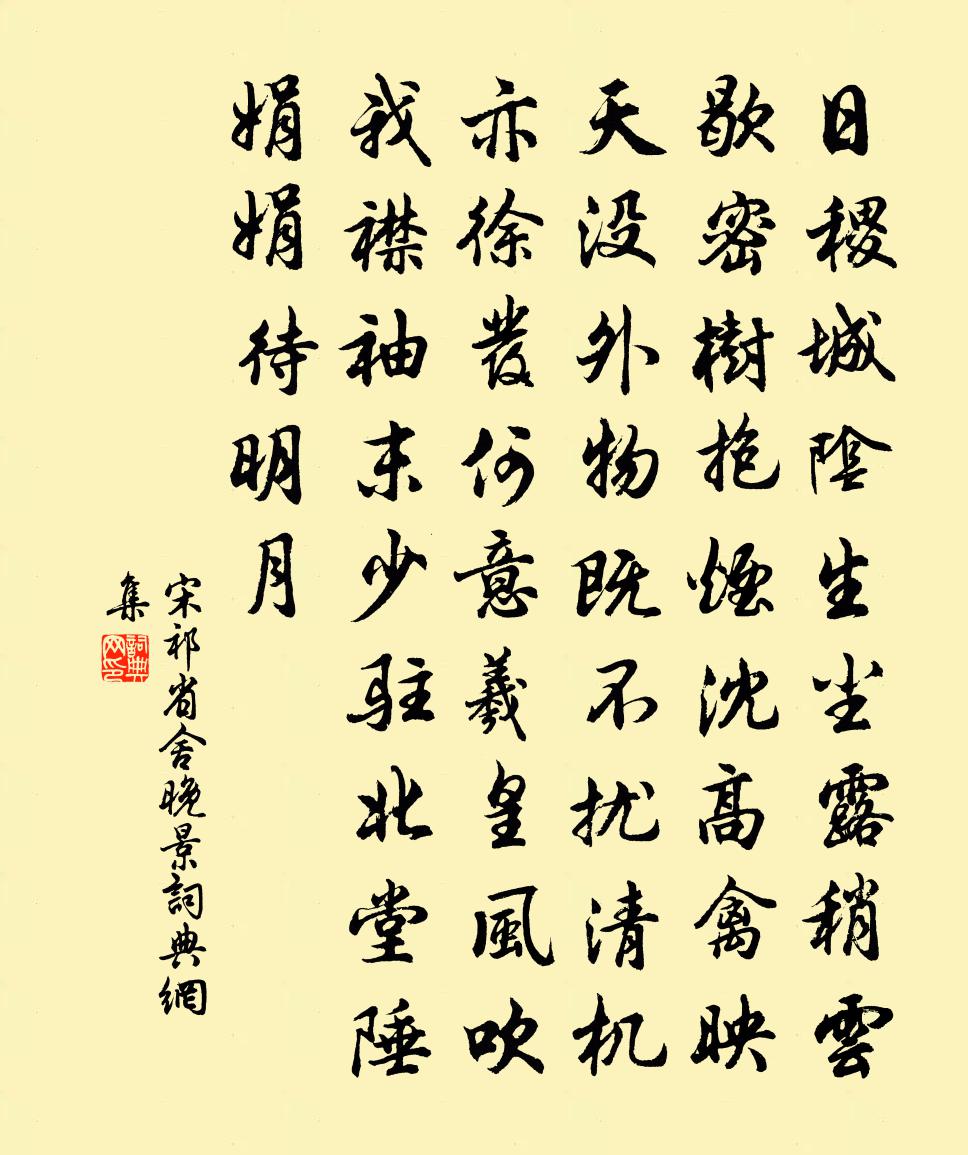 日稷城陰生尘露稍雲
歇密樹抱煙沈高禽映
天没外物既不扰清机
亦徐發何意羲皇風吹
我襟袖末少駐北堂陲
娟娟待明月
宋祁省舍晚景詞典網
集
詞典网印